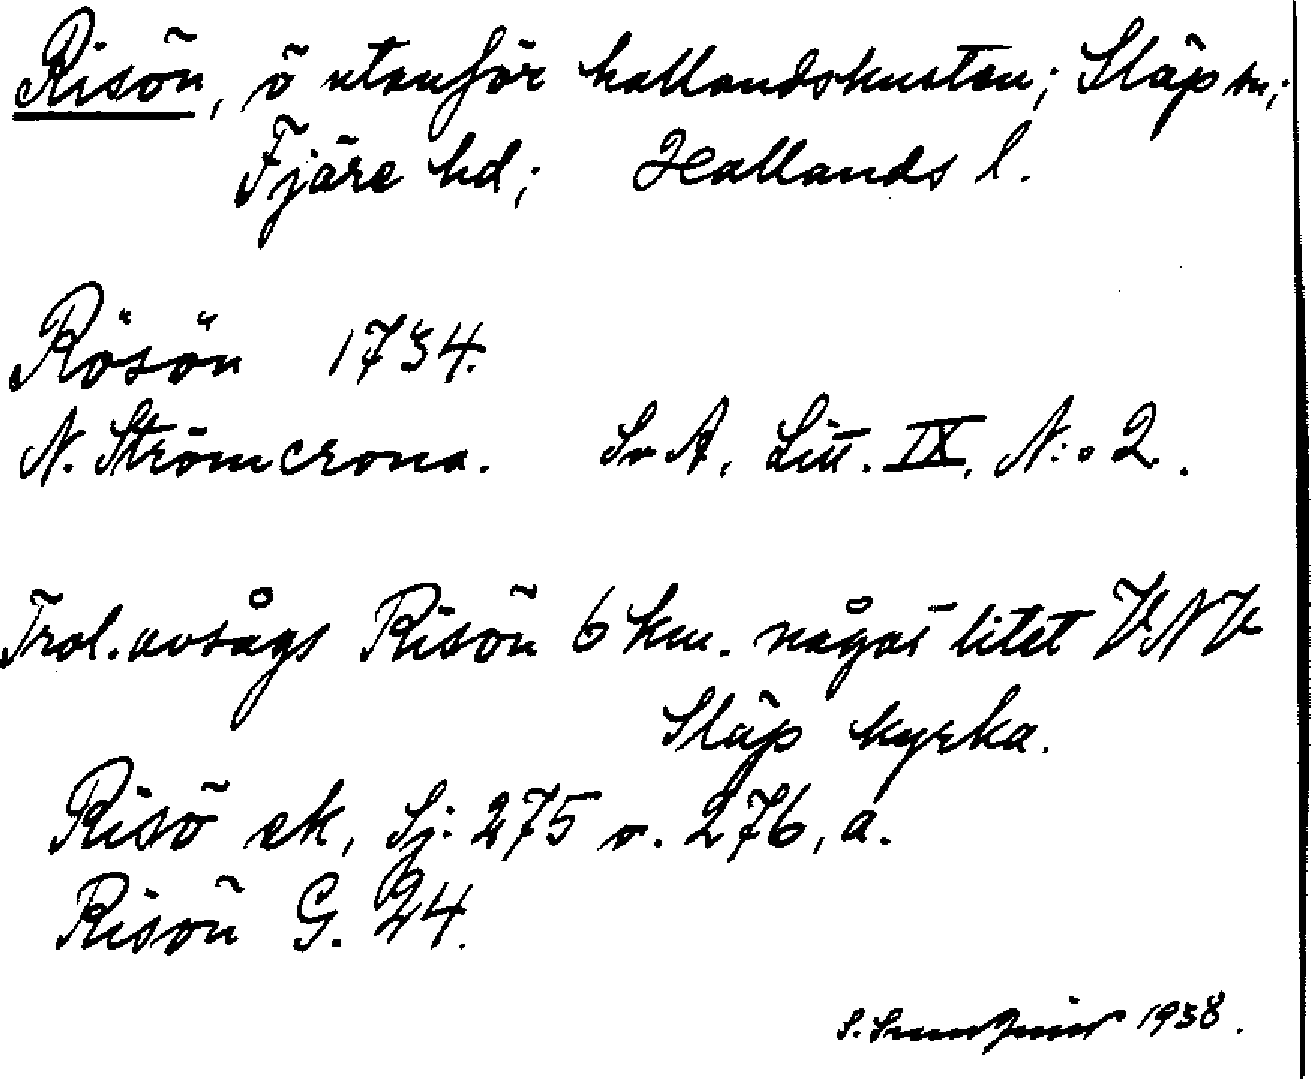 Risön, ö utanför hallandskusten; Släp sn;
Fjäre hd; Hallands l.
Rösön 1734.
N. Strömcrona. Sv A, Litt. IX, N:o 2.
Trol. avsågs Risön 6 km. något litet V.NV
Släp kyrka.
Risö ek, Sj: 275 v. 276, a.
Risön G. 24.
S. 1938.